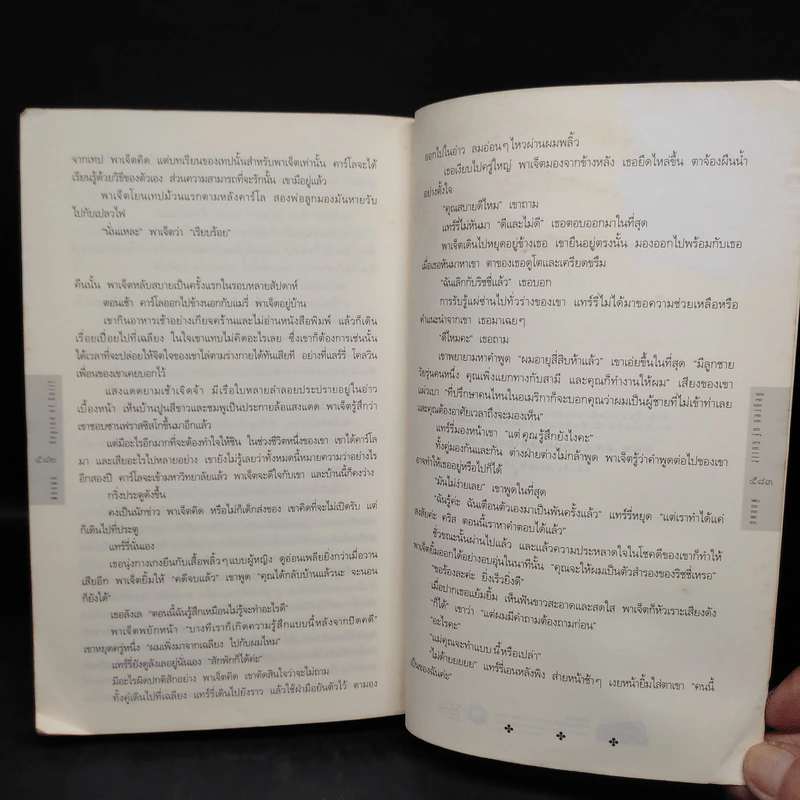 จากเทป พาเจ็ตคิด แต่บทเรียนของเทปนั้นสำหรับพาเจ็ตเท่านั้น คาร์โลจะได้
เรียนรู้ด้วยวิธีของตัวเอง ส่วนความสามารถที่จะรักนั้น เขามีอยู่แล้ว
พาเจ็ตโยนเทปม้วนแรกตามหลังคาร์โล สองพ่อลูกมองมันหายวับ
ไปกับเปลวไฟ
"นั่นแหละ" พาเจ็ตว่า "เรียบร้อย"
คืนนั้น พาเจ็ตหลับสบายเป็นครั้งแรกในรอบหลายสัปดาห์
ตอนเช้า คาร์โลออกไปข้างนอกกับแมรี่ พาเจ็ตอยู่บ้าน
เขากินอาหารเช้าอย่างเกียจคร้านและไม่อ่านหนังสือพิมพ์ แล้วก็เดิน
เรื่อยเปื่อยไปที่เฉลียง ในใจเขาแทบไม่คิดอะไรเลย ซึ่งเขาก็ต้องการเช่นนั้น
ได้เวลาที่จะปล่อยให้จิตใจของเขาไล่ตามร่างกายได้ทันเสียที อย่างที่แลร์รี่ โคลวิน
เพื่อนของเขาเคยบอกไว้
แสงแดดยามเช้าเจิดจ้า มีเรือใบหลายลำลอยประปรายอยู่ในอ่าว
เบื้องหน้า เห็นบ้านปูนสีขาวและชมพูเป็นประกายล้อแสงแดด พาเจ็ตรู้สึกว่า
เขาชอบซานฟรานซิสโกขึ้นมาอีกแล้ว
แต่มีอะไรอีกมากที่จะต้องทำให้ชิน ในช่วงชีวิตหนึ่งของเขา เขาได้คาร์โล
มา และเสียอะไรไปหลายอย่าง เขายังไม่รู้เลยว่าทั้งหมดนี้หมายความว่าอย่างไร
อีกสองปี คาร์โลจะเข้ามหาวิทยาลัยแล้ว พาเจ็ตจะดีใจกับเขา และบ้านนี้ก็คงว่าง
กริ่งประตูดังขึ้น
คงเป็นนักข่าว พาเจ็ตคิด หรือไม่ก็เด็กส่งของ เขาคิดที่จะไม่เปิดรับ แต่
ก็เดินไปที่ประตู
แทร์รี่นั่นเอง
เธอนุ่งกางเกงยีนกับเสื้อพลิ้วๆ แบบผู้หญิง ดูอ่อนเพลียยิ่งกว่าเมื่อวาน
เสียอีก พาเจ็ตยิ้มให้ "คดีจบแล้ว" เขาพูด "คุณได้กลับบ้านแล้วนะ จะนอน
ก็ยังได้"
เธอลังเล "ตอนนี้ฉันรู้สึกเหมือนไม่รู้จะทำอะไรดี"
พาเจ็ตพยักหน้า "บางทีเราก็เกิดความรู้สึกแบบนี้หลังจากปิดคดี"
เขาหยุดครู่หนึ่ง "ผมเพิ่งมาจากเฉลียง ไปกับผมไหม"
แทร์รี่ยังดูลังเลอยู่นั่นเอง "สักพักก็ได้ค่ะ"
มีอะไรผิดปกติสักอย่าง พาเจ็ตคิด เขาตัดสินใจว่าจะไม่ถาม
ทั้งคู่เดินไปที่เฉลียง แทร์รี่เดินไปยังราว แล้วใช้ฝ่ามือยันตัวไว้ ตามอง
๕๘๒
ออกไปในอ่าว ลมอ่อนๆ ไหวผ่านผมพลิ้ว
เธอเงียบไปครู่ใหญ่ พาเจ็ตมองจากข้างหลัง เธอยืดไหล่ขึ้น ตาจ้องผืนน้ำ
อย่างตั้งใจ
"คุณสบายดีไหม" เขาถาม
แทร์รี่ไม่หันมา "ดีและไม่ดี" เธอตอบออกมาในที่สุด
พาเจ็ตเดินไปหยุดอยู่ข้างเธอ เขายืนอยู่ตรงนั้น มองออกไปพร้อมกับเธอ
เมื่อเธอหันมาหาเขา ตาของเธอดูโตและเครียดขรึม
"ฉันเลิกกับริชชี่แล้ว" เธอบอก
การรับรู้แผ่ซ่านไปทั่วร่างของเขา แทร์รี่ไม่ได้มาขอความช่วยเหลือหรือ
คำแนะนำจากเขา เธอมาเฉยๆ
"ดีไหมคะ" เธอถาม
เขาพยายามหาคำพูด "ผมอายุสี่สิบห้าแล้ว" เขาเอ่ยขึ้นในที่สุด "มีลูกชาย
วัยรุ่นคนหนึ่ง คุณเพิ่งแยกทางกับสามี และคุณก็ทำงานให้ผม" เสียงของเขา
แผ่วเบา "ที่ปรึกษาคนไหนในอเมริกาก็จะบอกคุณว่าผมเป็นผู้ชายที่ไม่เข้าท่าเลย
และคุณต้องอาศัยเวลาถึงจะมองเห็น"
แทร์รี่มองหน้าเขา "แต่คุณรู้สึกยังไงคะ"
ทั้งคู่มองกันและกัน ต่างฝ่ายต่างไม่กล้าพูด พาเจ็ตรู้ว่าคำพูดต่อไปของเขา
อาจทำให้เธออยู่หรือไปก็ได้
"มันไม่ง่ายเลย" เขาพูดในที่สุด
"ฉันรู้ค่ะ ฉันเตือนตัวเองมาเป็นพันครั้งแล้ว" แทร์รี่หยุด "แต่เราทำได้แค่
สงสัยค่ะ คริส ตอนนี้เราหาคำตอบได้แล้ว"
ชั่วขณะนั้นผ่านไปแล้ว และแล้วความประหลาดใจในโชคดีของเขาก็ทำให้
พาเจ็ตยิ้มออกได้อย่างอบอุ่นในนาทีนั้น "คุณจะให้ผมเป็นตัวสำรองของริชชี่เหรอ"
"ขอร้องละค่ะ ยิ่งเร็วยิ่งดี"
เมื่อปากเธอแย้มยิ้ม เห็นฟันขาวสะอาดและสดใส พาเจ็ตก็หัวเราะเสียงดัง
"ก็ได้" เขาว่า "แต่ผมมีคำถามต้องถามก่อน"
"อะไรคะ"
"แม่คุณจะทำแบบนี้หรือเปล่า"
"ไม่ด้ายยยยย" แทร์รี่เอนหลังพิง ส่ายหน้าช้าๆ เงยหน้ายิ้มใส่ตาเขา "คนนี้
เป็นของฉันค่ะ"
Degree of Guilt
๕๘๓